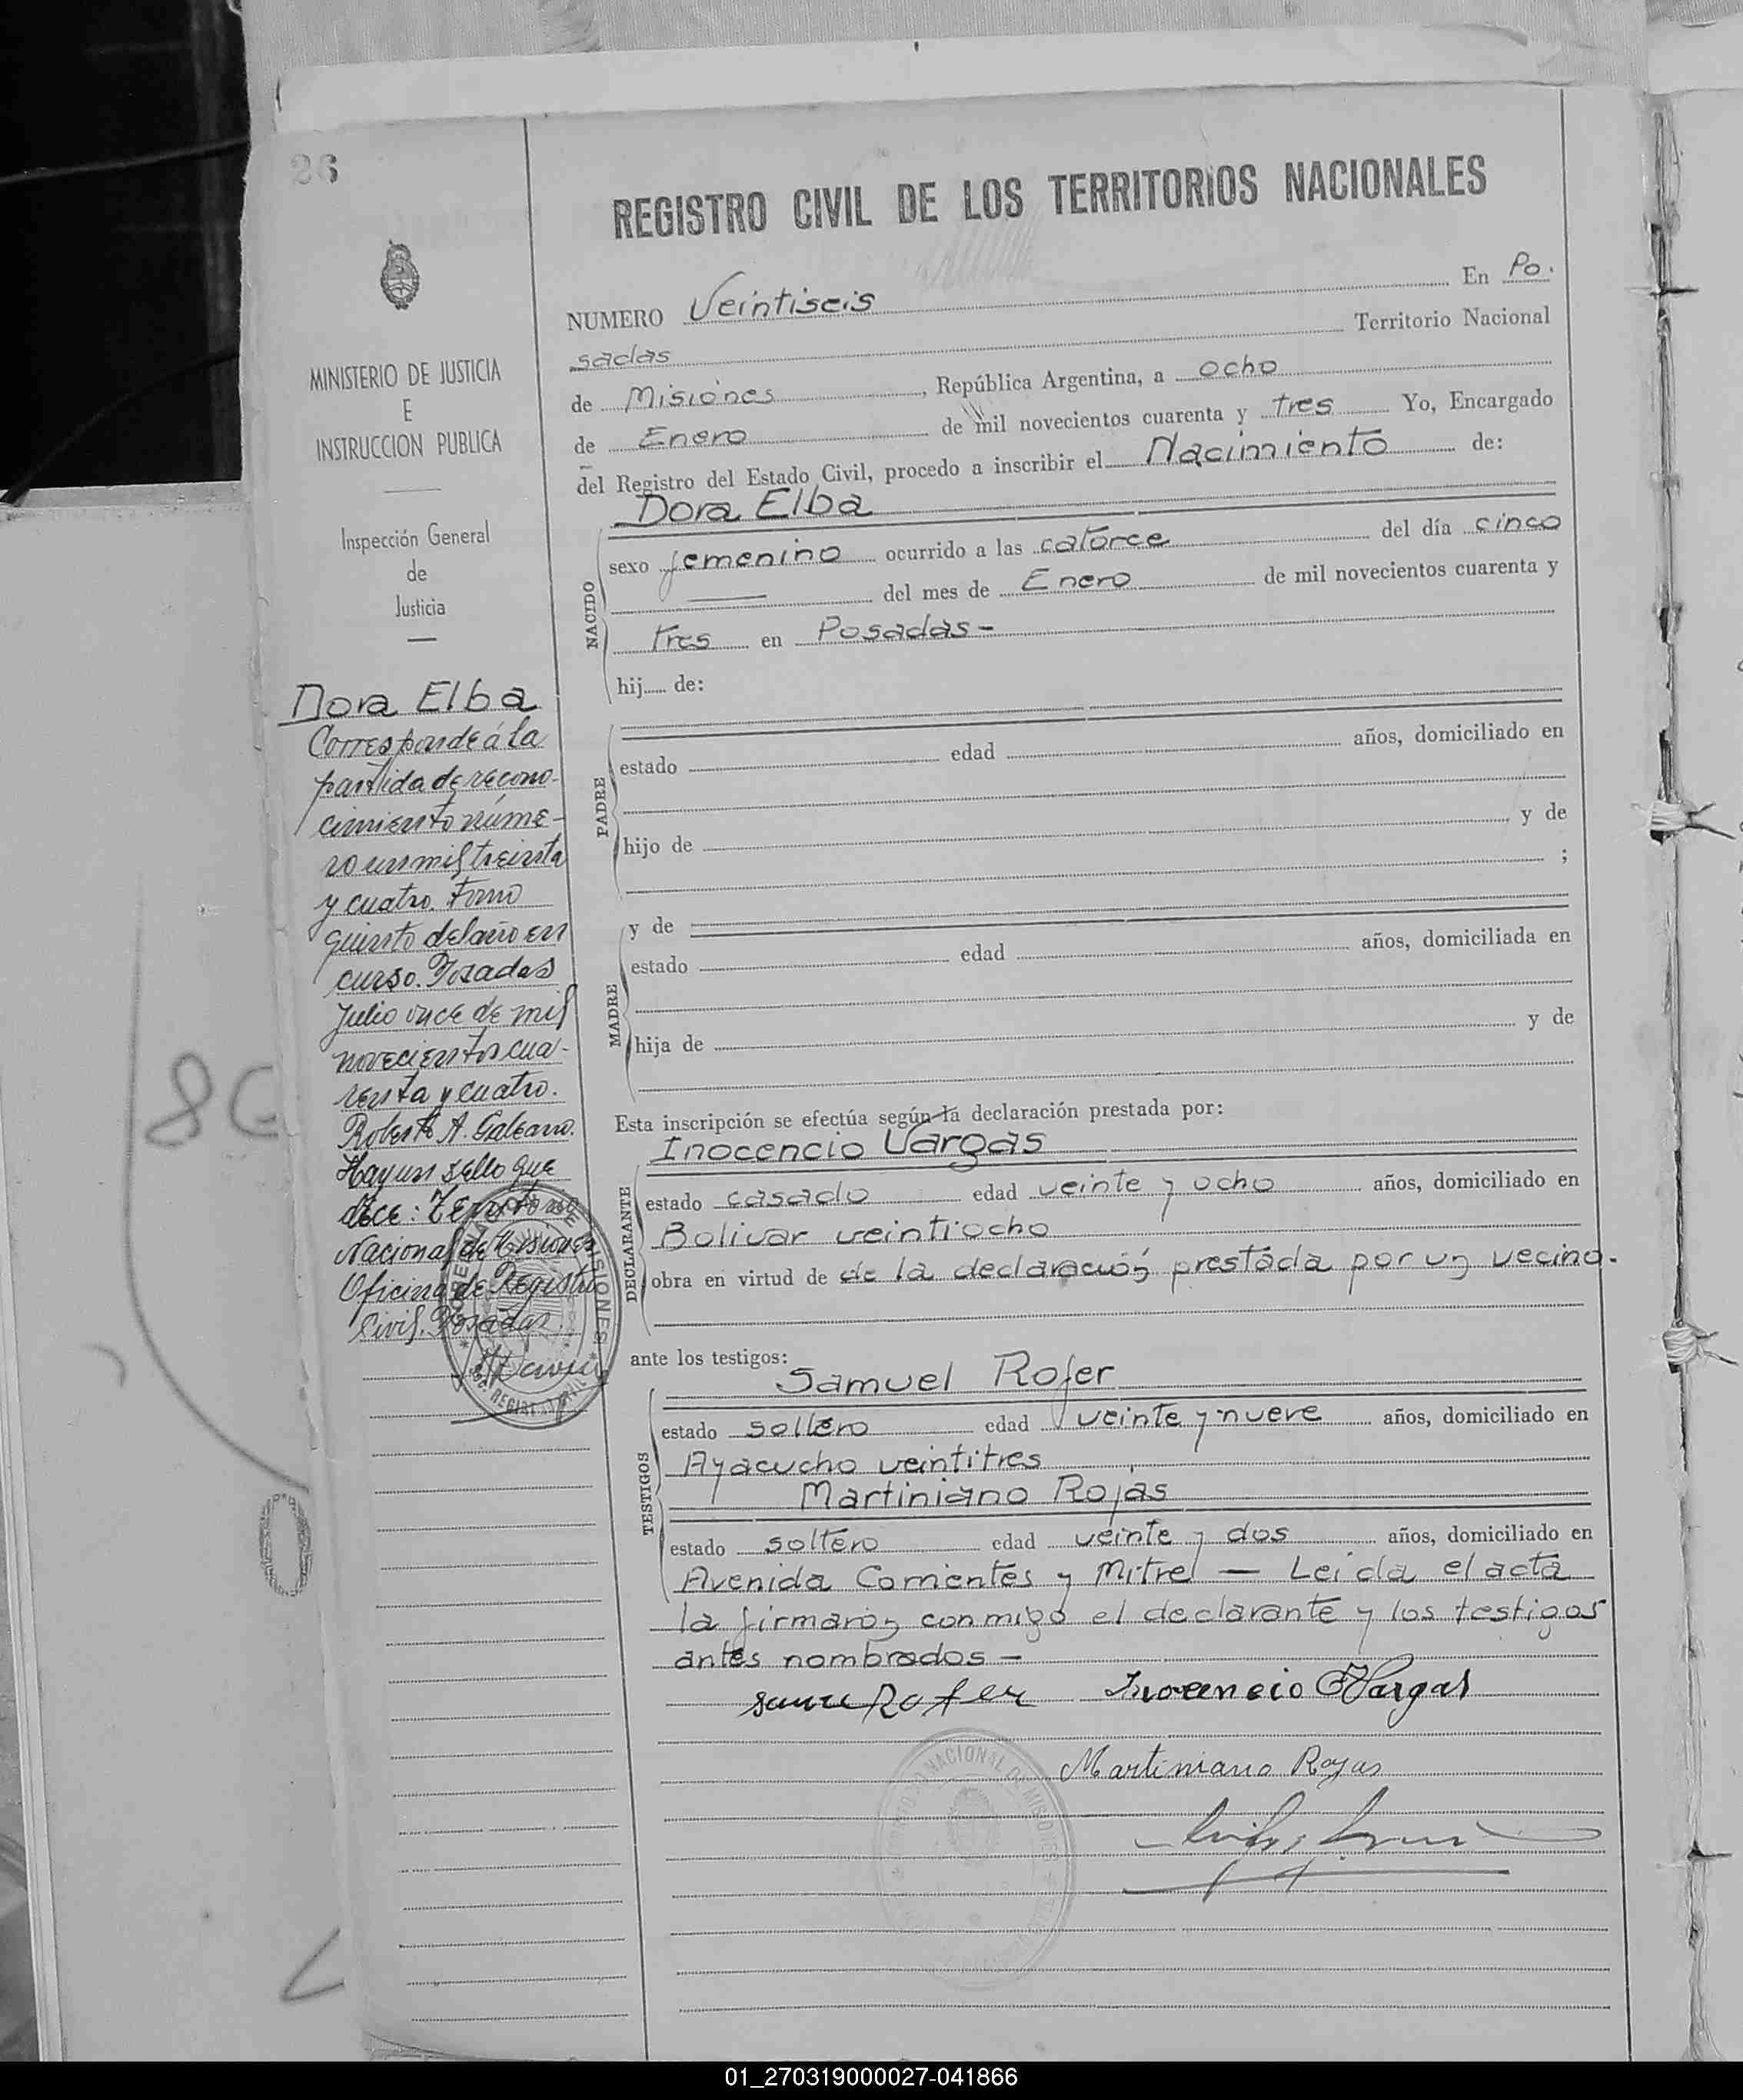 26
REGISTRO CIVIL DE LOS TERRITORIOS NACIONALES
NUMERO Veintiseis En Po.
sadas Territorio Nacional
de Misiones, República Argentina, a ocho
de Enero de mil novecientos cuarenta y tres Yo, Encargado
del Registro del Estado Civil, procedo a inscribir el Nacimiento de:
MINISTERIO DE JUSTICIA
E
INSTRUCCION PUBLICA
Inspección General
de
Justicia
Dora Elba
Corresponde á la
partida de recono-
cimiento núme-
ro un mil treinta
y cuatro. Tomo
quinto del año en
curso. Posadas
Julio once de mil
novecientos cua-
renta y cuatro.
Roberto A. Galeano.
Hay un sello que
dice: Territorio
Nacional de Misiones
Oficina de Registro
Civil. Posadas.
NACIDO
Dora Elba
sexo femenino ocurrido a las catorce del día cinco
del mes de Enero de mil novecientos cuarenta y
tres en Posadas -
hij de:
PADRE
estado edad años, domiciliado en
hijo de y de
;
MADRE
y de
estado edad años, domiciliada en
hija de y de
Esta inscripción se efectúa según la declaración prestada por:
DECLARANTE
Inocencio Vargas
estado casado edad veinte y ocho años, domiciliado en
Bolivar veintiocho
obra en virtud de de la declaración prestada por un vecino.
ante los testigos:
TESTIGOS
Samuel Rofer
estado soltero edad veinte y nueve años, domiciliado en
Ayacucho veintitres
Martiniano Rojas
estado soltero edad veinte y dos años, domiciliado en
Avenida Corrientes y Mitre — Leida el acta
la firmaron conmigo el declarante y los testigos
antes nombrados —
Rofer Inocencio Vargas
Martiniano Rojas
8C
0
01_270319000027-041866